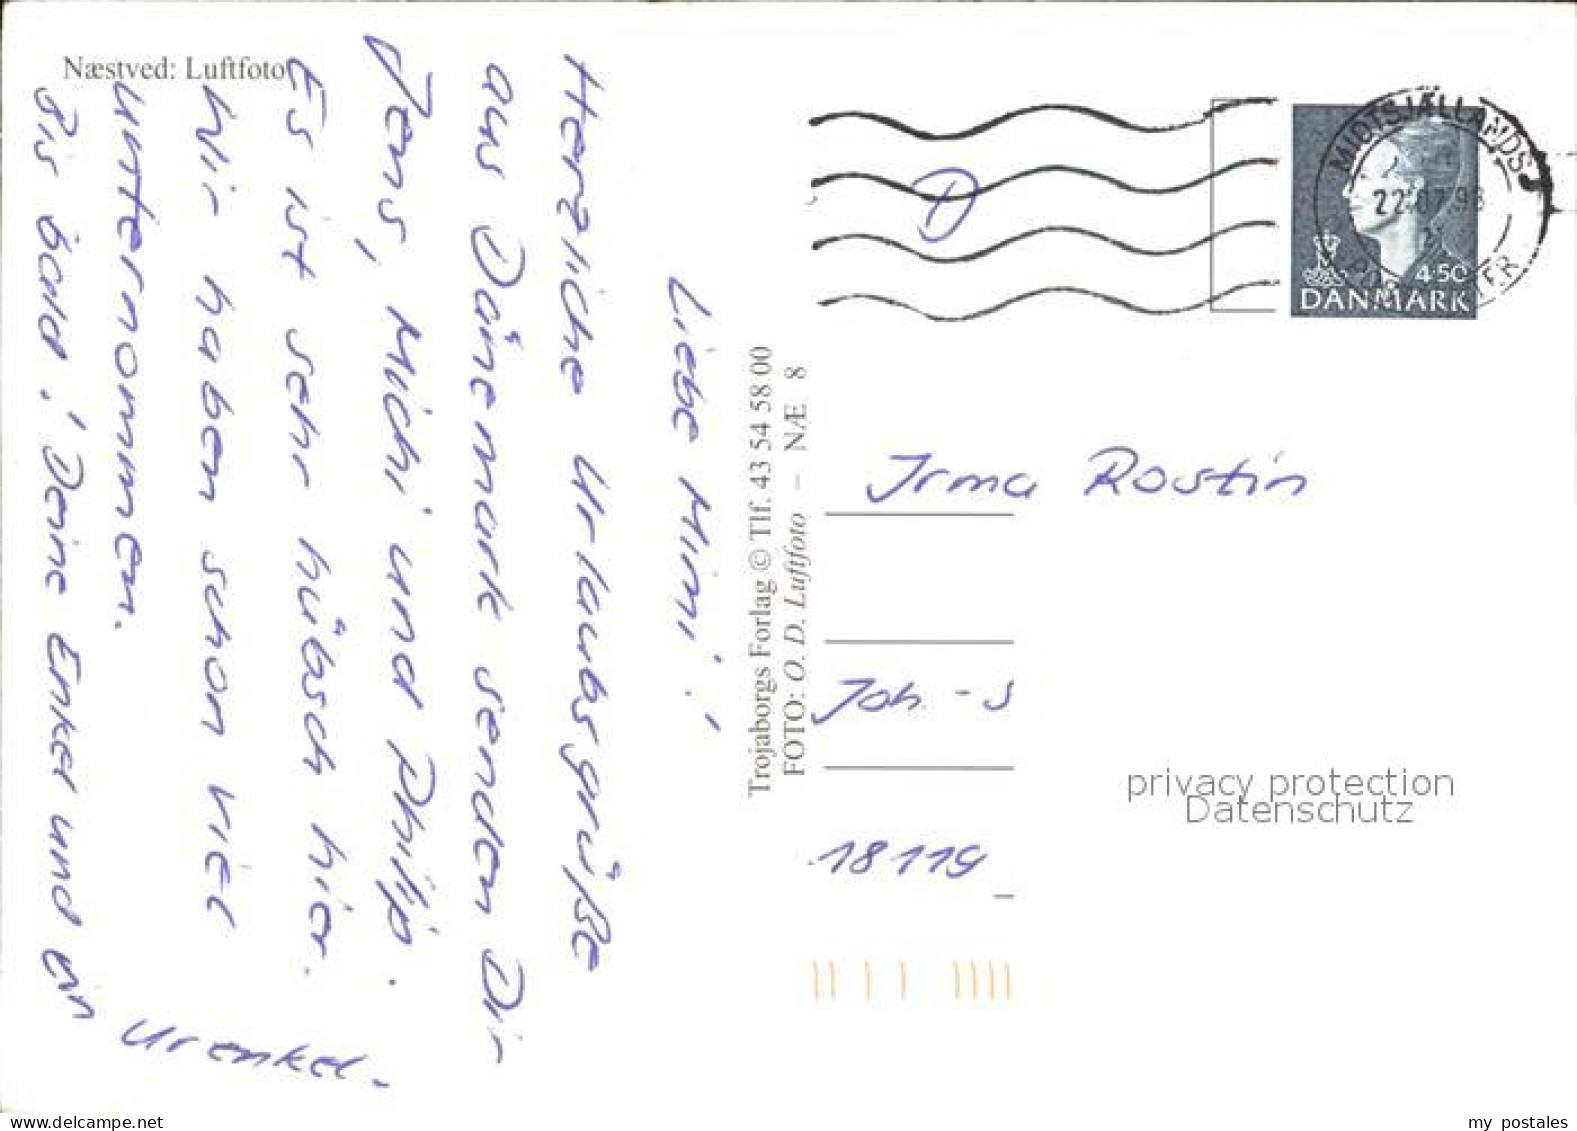 Næstved: Luftfoto
Liebe Mimi!
Herzliche Urlaubsgrüße
aus Dänemark senden Dir
Jens, Michi und Philip.
Es ist sehr hübsch hier.
Wir haben schon viel
unternommen.
Bis bald! Deine Enkel und ein
Urenkel.
Trojaborgs Forlag © Tlf. 43 54 58 00
FOTO: O. D. Luftfoto – NÆ 8
MIDTSJÆLLANDS
22.07.98
4.50
DANMARK
D
Irma Rostin
Joh.-S
18119
privacy protection
Datenschutz
my postales